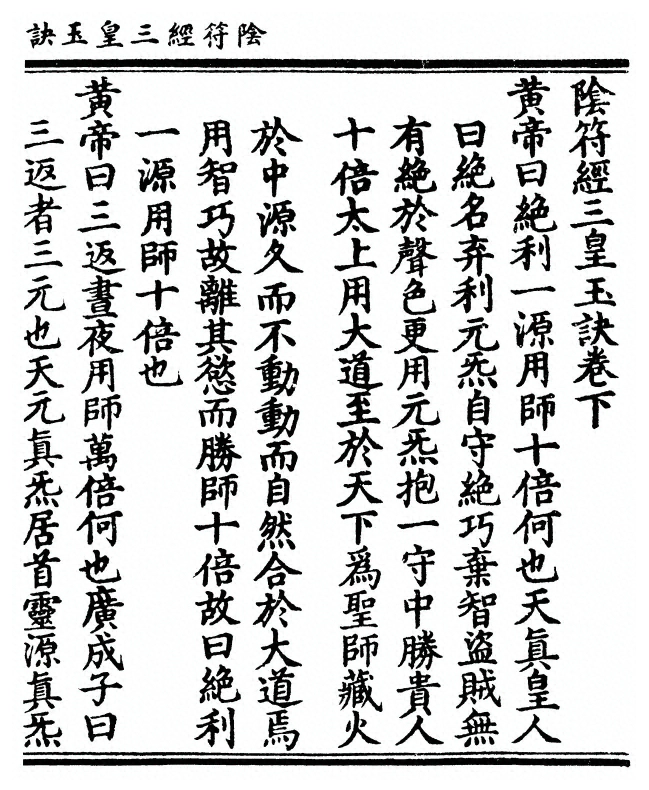 陰符經三皇玉訣
陰符經三皇玉訣卷下
黃帝曰絕利一源用師十倍何也天眞皇人
曰絕名弃利元炁自守絕巧棄智盜賊無
有絕於聲色更用元炁抱一守中勝貴人
十倍太上用大道至於天下爲聖師藏火
於中源久而不動動而自然合於大道焉
用智巧故離其慾而勝師十倍故曰絕利
一源用師十倍也
黃帝曰三返晝夜用師萬倍何也廣成子曰
三返者三元也天元眞炁居首靈源眞炁